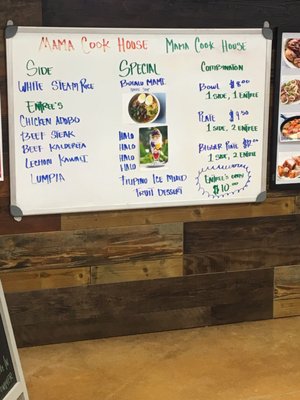 Mama Cook House Mama Cook House
Side
White Steam Rice
Entree's
Chicken Adobo
Beef Steak
Beef Kaldereta
Lechon Kawali
Lumpia
Special
Bulalo Mami
Halo
Halo
Halo
Halo
Filipino Ice Mixed
Fruit Dessert
Combination
Bowl $8.00
1 Side, 1 Entree
Plate
1 Side, 2 Entree
1 Side, 3 Entree
Entree's Only
$10.00